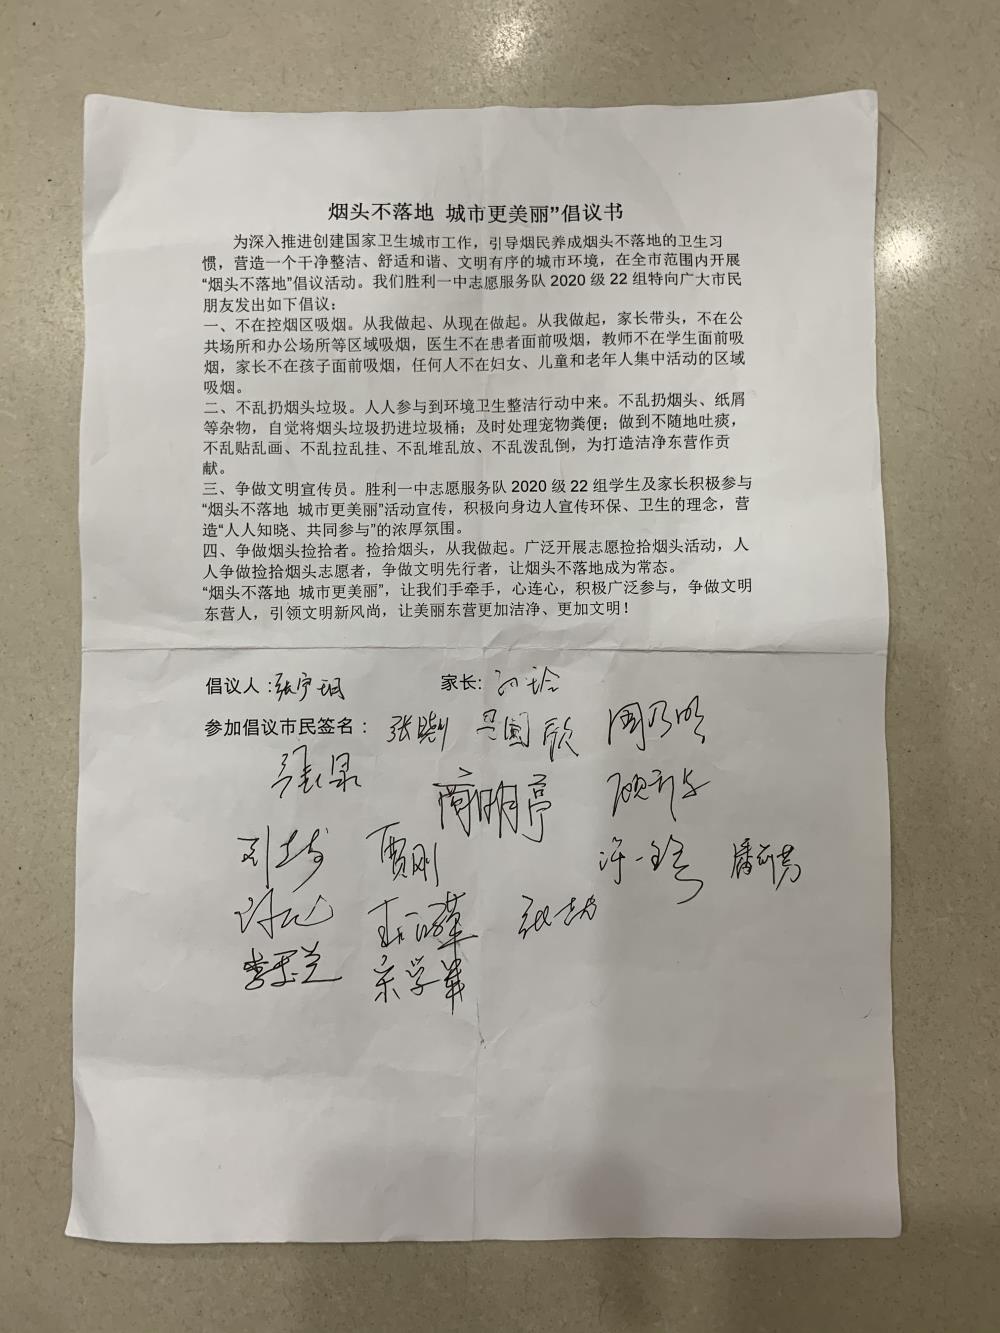 烟头不落地 城市更美丽”倡议书
为深入推进创建国家卫生城市工作，引导烟民养成烟头不落地的卫生习
惯，营造一个干净整洁、舒适和谐、文明有序的城市环境，在全市范围内开展
“烟头不落地”倡议活动。我们胜利一中志愿服务队 2020 级 22 组特向广大市民
朋友发出如下倡议：
一、不在控烟区吸烟。从我做起、从现在做起。从我做起，家长带头，不在公
共场所和办公场所等区域吸烟，医生不在患者面前吸烟，教师不在学生面前吸
烟，家长不在孩子面前吸烟，任何人不在妇女、儿童和老年人集中活动的区域
吸烟。
二、不乱扔烟头垃圾。人人参与到环境卫生整洁行动中来。不乱扔烟头、纸屑
等杂物，自觉将烟头垃圾扔进垃圾桶；及时处理宠物粪便；做到不随地吐痰，
不乱贴乱画、不乱拉乱挂、不乱堆乱放、不乱泼乱倒，为打造洁净东营作贡
献。
三、争做文明宣传员。胜利一中志愿服务队 2020 级 22 组学生及家长积极参与
“烟头不落地 城市更美丽”活动宣传，积极向身边人宣传环保、卫生的理念，营
造“人人知晓、共同参与”的浓厚氛围。
四、争做烟头捡拾者。捡拾烟头，从我做起。广泛开展志愿捡拾烟头活动，人
人争做捡拾烟头志愿者，争做文明先行者，让烟头不落地成为常态。
“烟头不落地 城市更美丽”，让我们手牵手，心连心，积极广泛参与，争做文明
东营人，引领文明新风尚，让美丽东营更加洁净、更加文明！
倡议人：张宇玥 家长：
参加倡议市民签名： 周乃明
商明亭
贾刚
宋学军